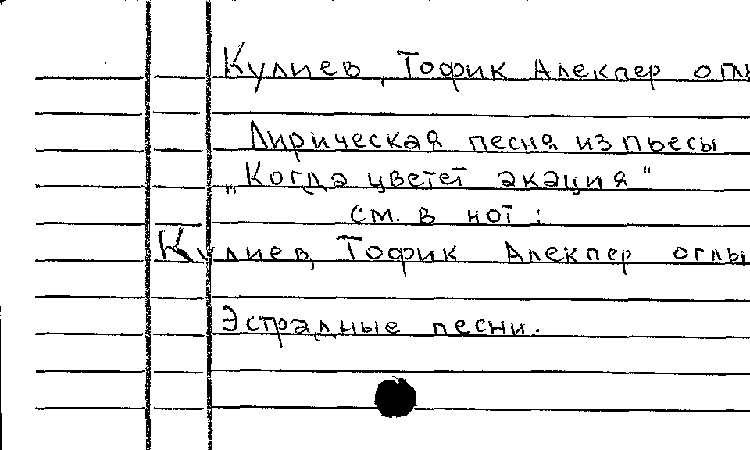 Кулиев, Тофик Алекпер оглы
Лирическая песня из пьесы
„Когда цветет акация"
см. в нот:
Кулиев, Тофик Алекпер оглы
Эстрадные песни.